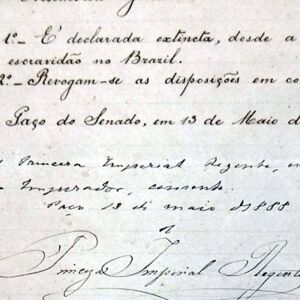 1º._ E' declarada extincta, desde a
escravidão no Brazil.
2º._ Revogam-se as disposições em co
Paço do Senado, em 13 de Maio de
A Princeza Imperial Regente, em
Imperador, consente.
Paço 13 de maio de 1888
Princeza Imperial Regente